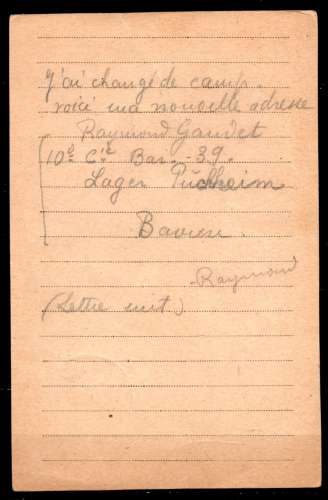 J'ai changé de camp.
voici ma nouvelle adresse
Raymond Gaudet
10e Cie Bar. -39.
Lager Puchheim
Baviere.
Raymond
(Lettre suit)